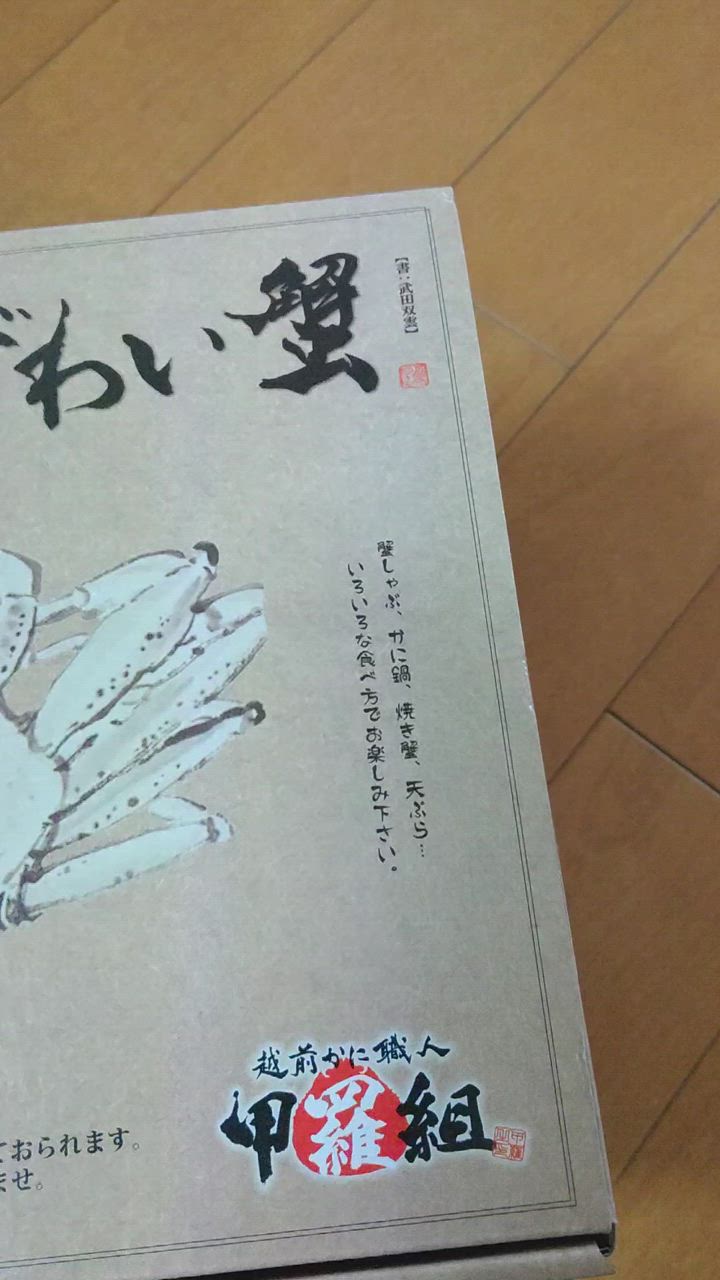 ずわい蟹
【書：武田双雲】
蟹しゃぶ、かに鍋、焼き蟹、天ぷら…
いろいろな食べ方でお楽しみ下さい。
越前かに職人
甲羅組
ておられます。
ませ。